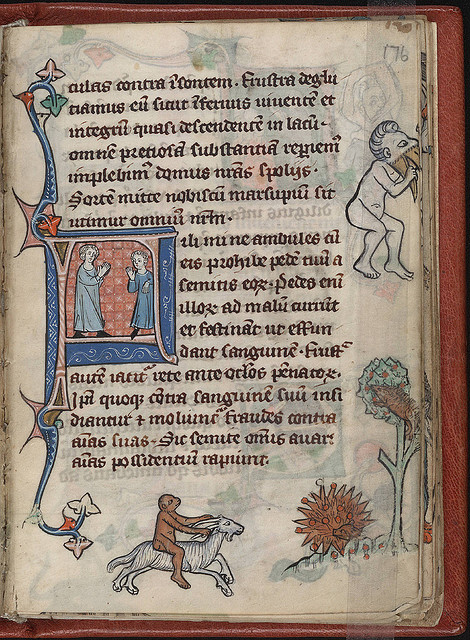 176
culas contra ĩsontem. Frustra deglu
tiamus eũ sicut ĩfernus uiuentẽ et
integrũ quasi descendentẽ in lacũ.
omnẽ preciosã substantiã reperiem᷒
implebim᷒ domus nr̃as spolijs.
Sortẽ mitte nobiscũ marsupiũ sit
omniũ nr̃m.
Fili mi ne ambules cũ
eis prohibe pedẽ tuũ a
semitis eoꝝ. Pedes enĩ
illoꝝ ad malũ currũt
et festinãt ut effun
dant sanguinẽ. Frustᵃ
autẽ iacitᷣ rete ante oclõs pẽnatoꝝ.
Ip̃i quoqꝫ cõtra sanguinẽ suũ insi
diantur ⁊ moliunᷣ fraudes contra
aĩas suas. Sic semite om̃is auari
aĩas possidentiũ rapiunt.